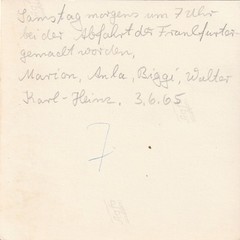 Samstag morgens um 7 Uhr
bei der Abfahrt der Frankfurter
gemacht worden,
Marion, Anka, Biggi, Walter
Karl-Heinz, 3.6.65
7